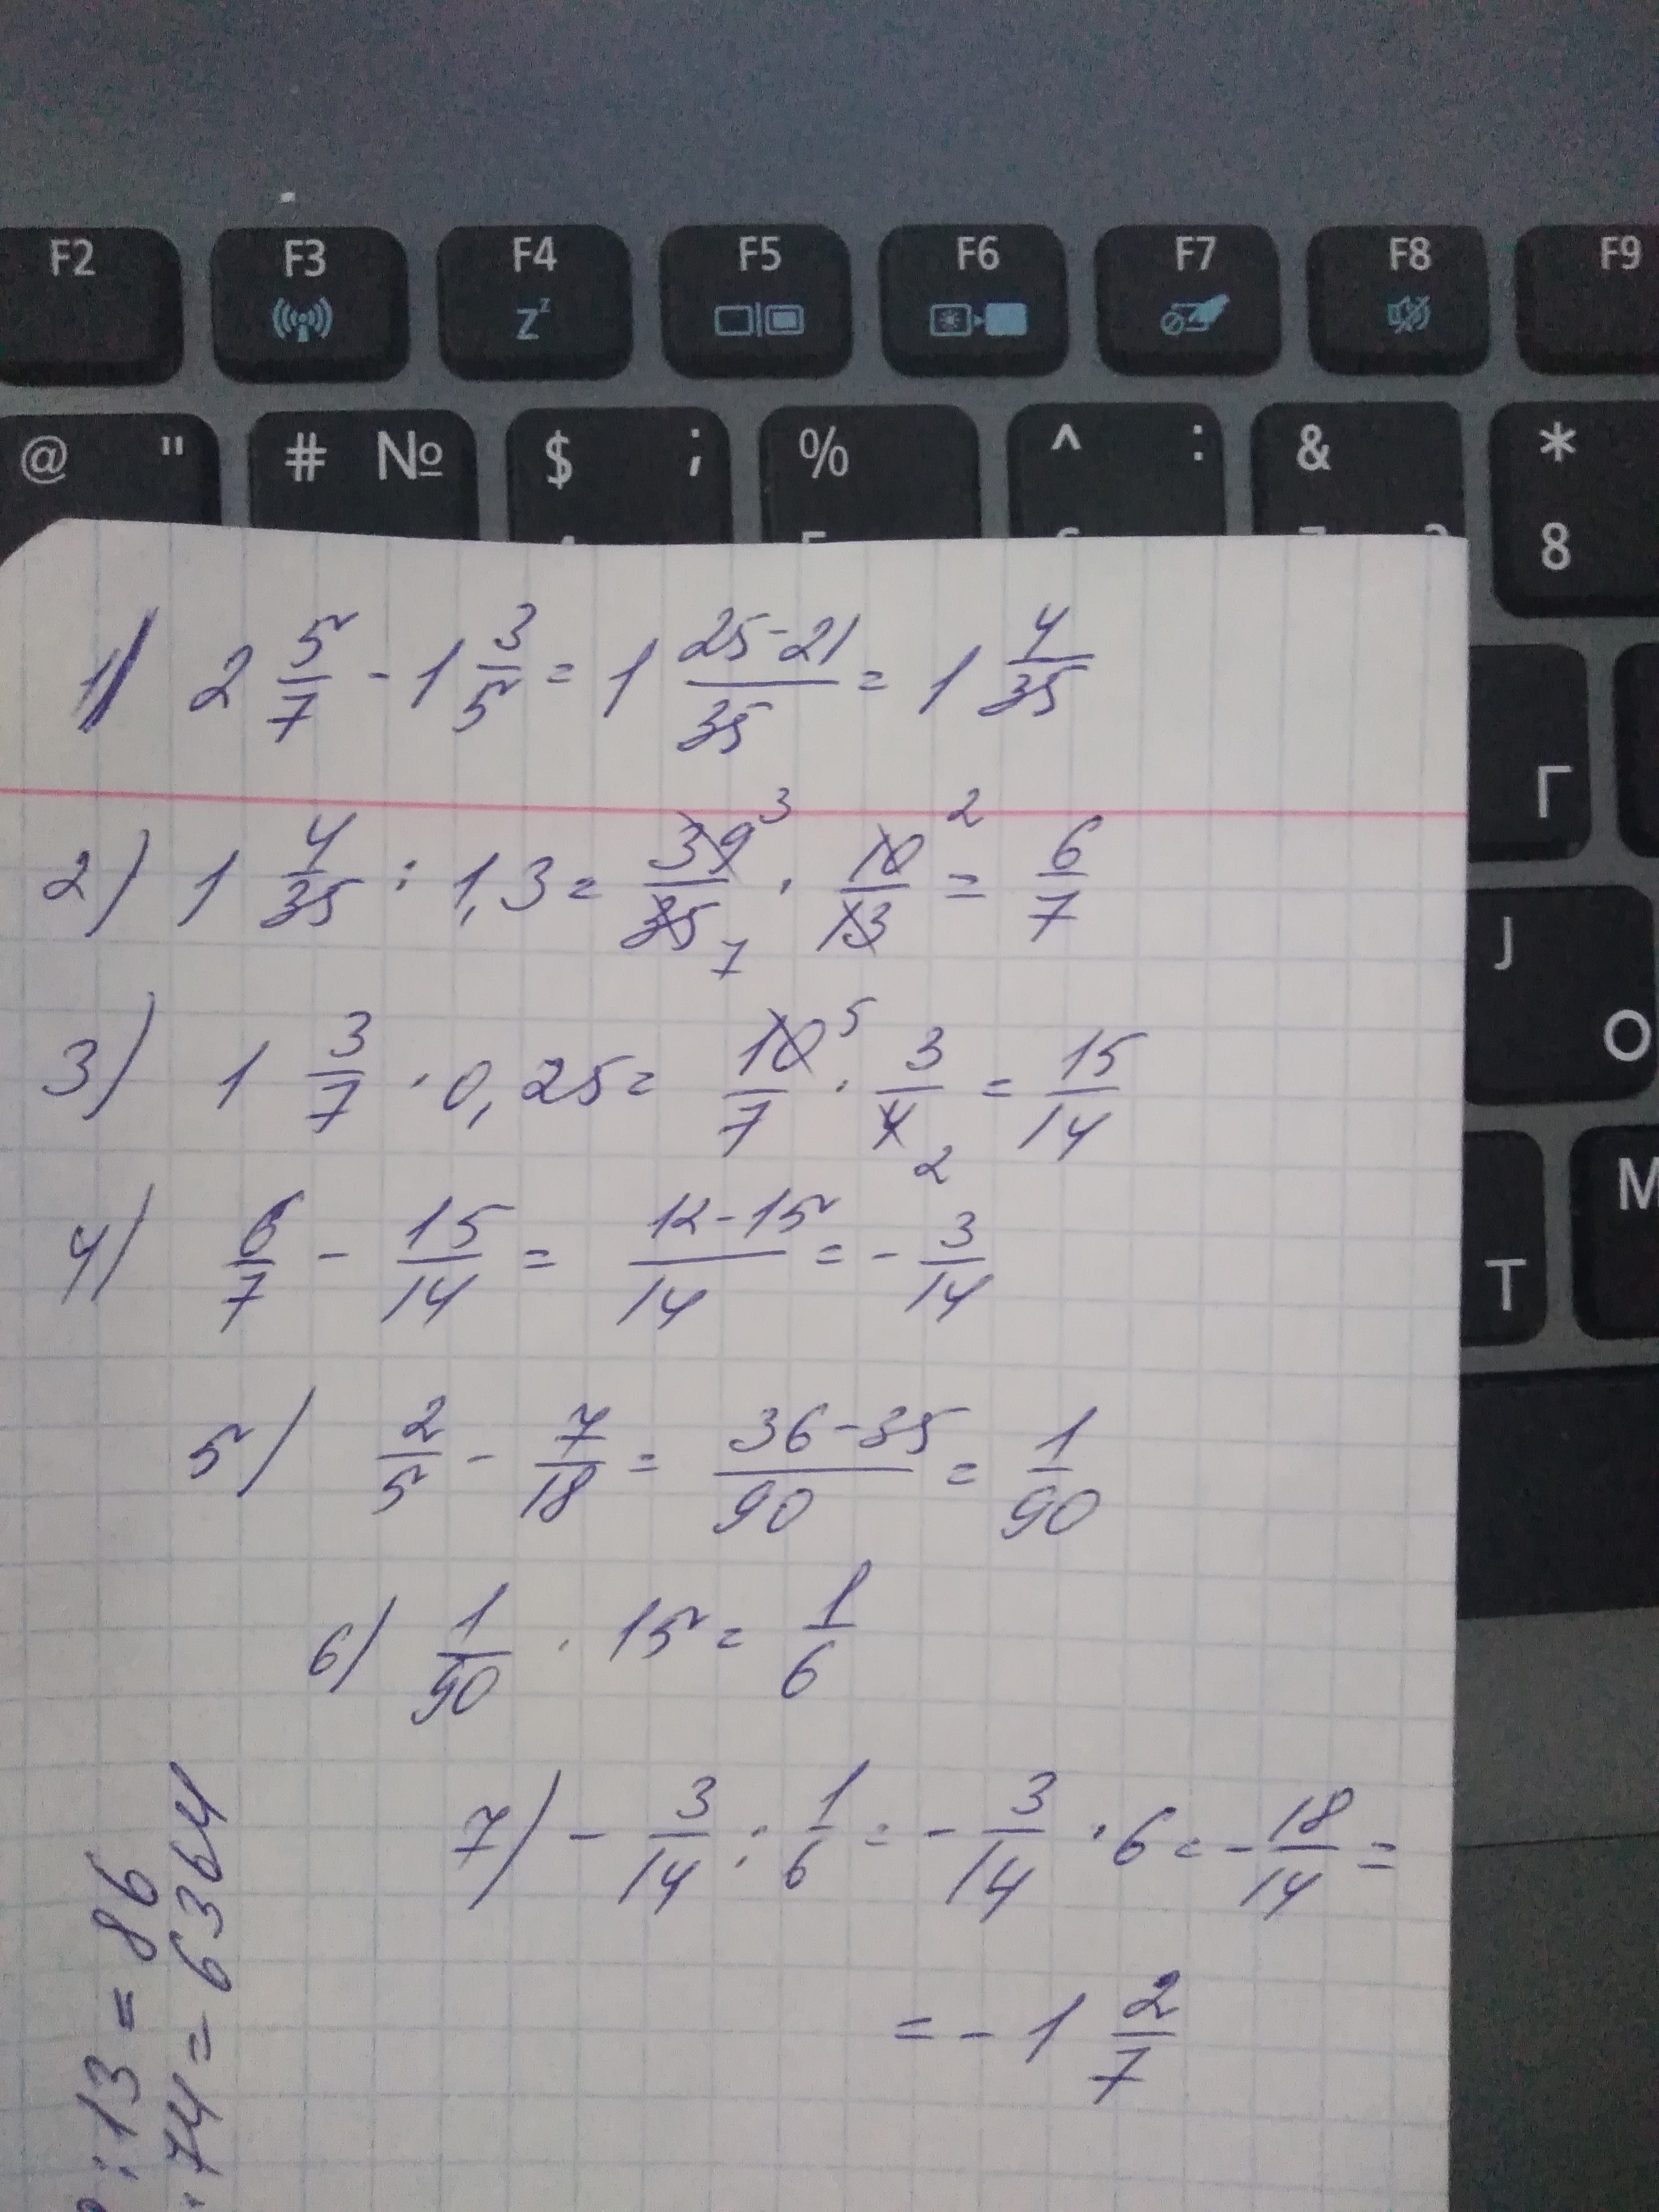 F2 F3 F4 F5 F6 F7 F8 F9
Zz
@ " # № $ ; % ^ : & *
8
Г
J О
Т М
1) 2 5/7 - 1 3/5 = 1 25-21/35 = 1 4/35
2) 1 4/35 : 1,3 = 39 3/35 7 · 10 2/13 = 6/7
3) 1 3/7 · 0,25 = 10 5/7 · 3/4 2 = 15/14
4) 6/7 - 15/14 = 12-15/14 = - 3/14
5) 2/5 - 7/18 = 36-35/90 = 1/90
6) 1/90 · 15 = 1/6
7) - 3/14 : 1/6 = - 3/14 · 6 = - 18/14 =
= - 1 2/7
: 13 = 86
· 74 = 6364